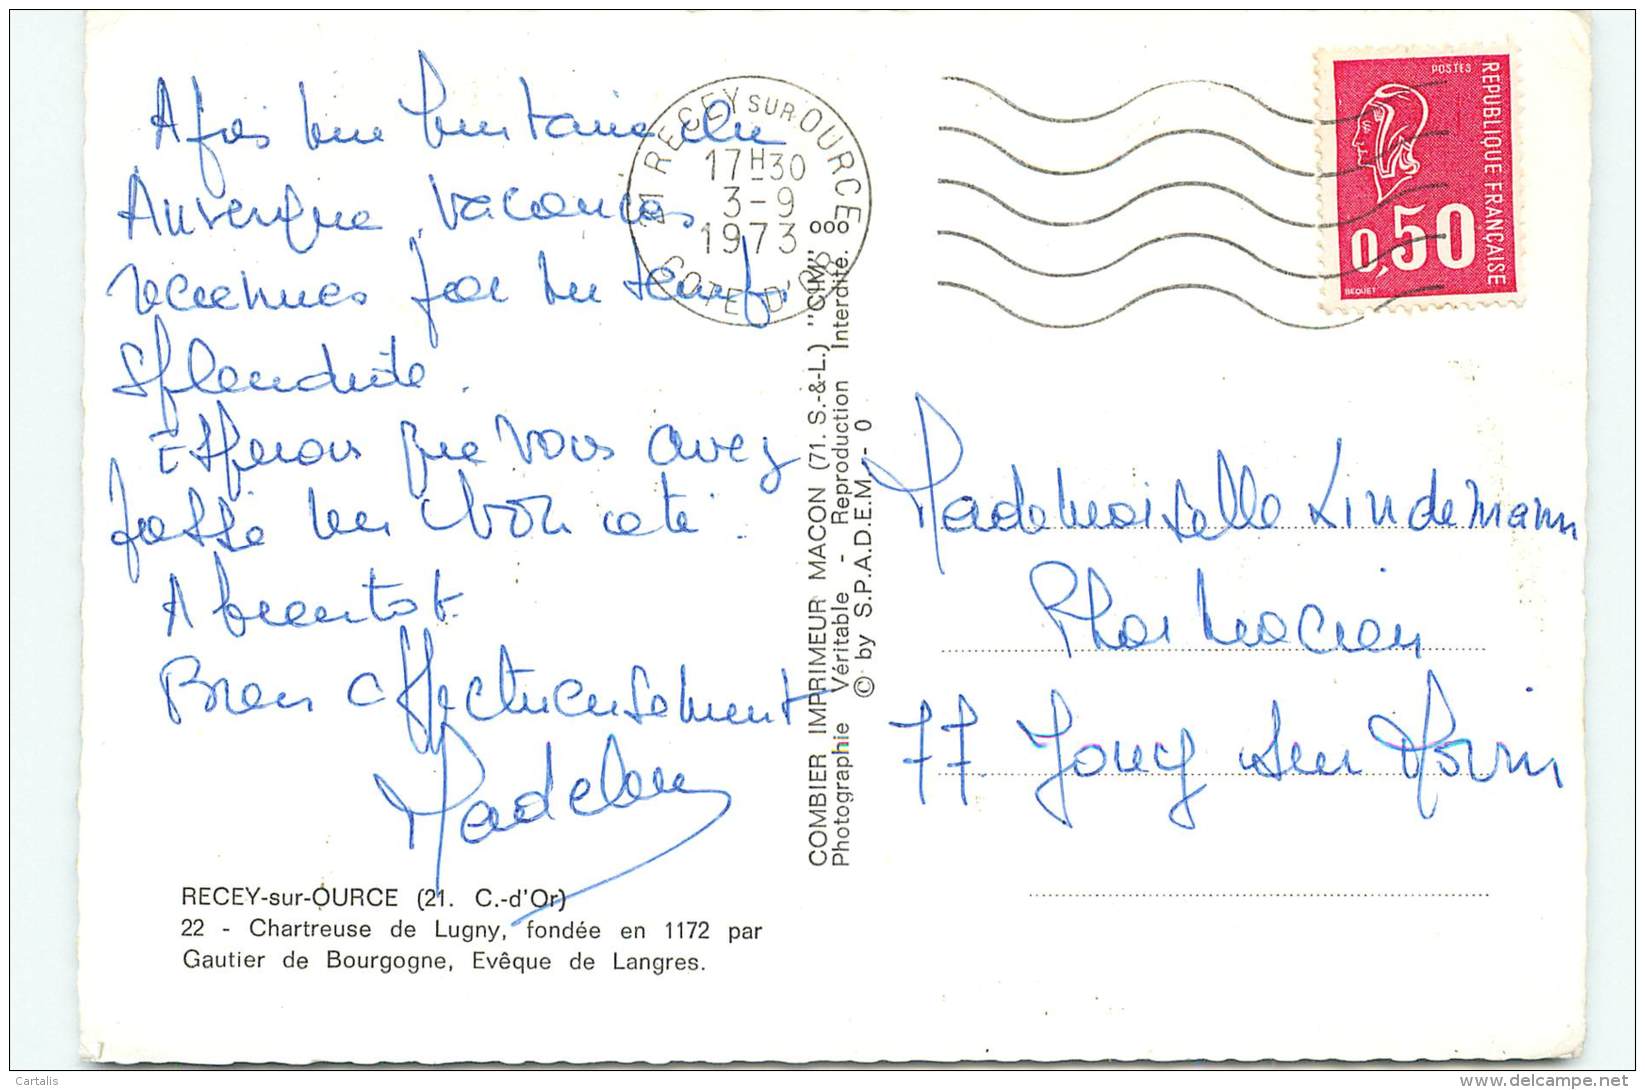 Après une huitaine en
Auvergne, vacances
reconnues par un temps
splendide.
Espérons que vous avez
passé un bon côté.
A bientôt.
Bien affectueusement
Madelon
RECEY-sur-OURCE (21. C.-d'Or)
22 - Chartreuse de Lugny, fondée en 1172 par
Gautier de Bourgogne, Evêque de Langres.
21 RECEY SUR OURCE
17H30
3-9
1973
COTE D'OR
COMBIER IMPRIMEUR MACON (71. S.-&-L.) "CIM"
Photographie Véritable - Reproduction Interdite.
© by S.P.A.D.E.M. - 0
POSTES
REPUBLIQUE FRANÇAISE
0,50
BEQUET
Mademoiselle Lindemann
Pharmacien
77 Jouy sur Morin
Cartalis
delcampe.net